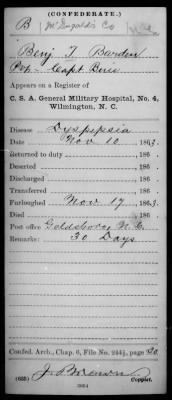 (CONFEDERATE.)
B Co
Benj T Barden
Pvt - Capt
Appears on a Register of
C. S. A. General Military Hospital, No. 4,
Wilmington, N. C.
Disease Dyspepsia
Date Nov 10, 1863.
Returned to duty , 186 .
Deserted , 186 .
Discharged , 186 .
Transferred , 186 .
Furloughed Nov 17, 1863.
Died , 186 .
Post office Goldsboro, N.C.
Remarks: 30 Days
Confed. Arch., Chap. 6, File No. 284½, page 20
(635) J. Brown
Copyist.